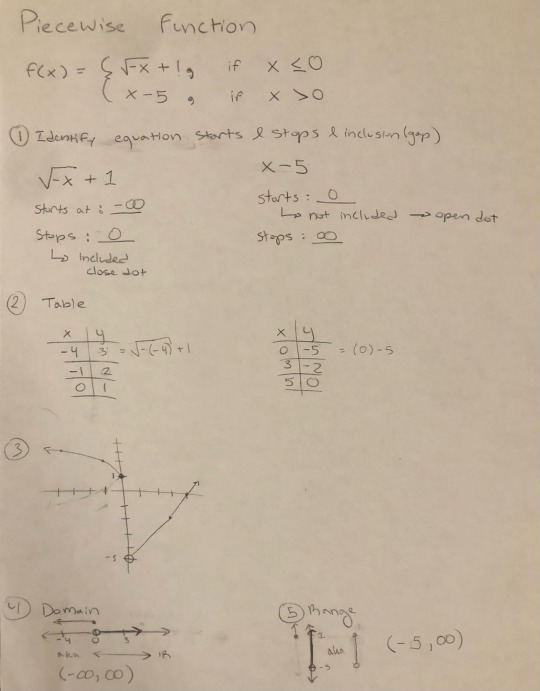 Piecewise Function
f(x) = { √-x + 1, if x ≤ 0
x - 5, if x > 0
① Identify equation starts & stops & inclusion (gap)
√-x + 1
starts at: -∞
stops: 0
↳ included
close dot
x - 5
starts: 0
↳ not included → open dot
stops: ∞
② Table
x | y
-4 | 3 = √-(-4) + 1
-1 | 2
0 | 1
x | y
0 | -5 = (0) - 5
3 | -2
5 | 0
③
1
-5
④ Domain
-4 0 3
aka ↔ ℝ
(-∞, ∞)
⑤ Range
1
aka
-5
(-5, ∞)